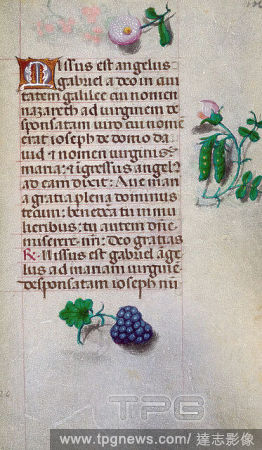 Missus est angelus
gabriel a deo in ciui
tatem galilee cui nomen
nazareth ad uirginem de
sponsatam uiro cui nome
erat ioseph de domo da
uid et nomen uirginis
maria et ingressus angel
ad eam dixit Aue mari
a gratia plena dominus
tecum benedcta tu in mu
lieribus tu autem dne
miserere nri Deo gratias
R Missus est gabriel ange
lus ad mariam uirgine
desponsatam ioseph nū
TPG
www.tpgnews.com/ 達志影像